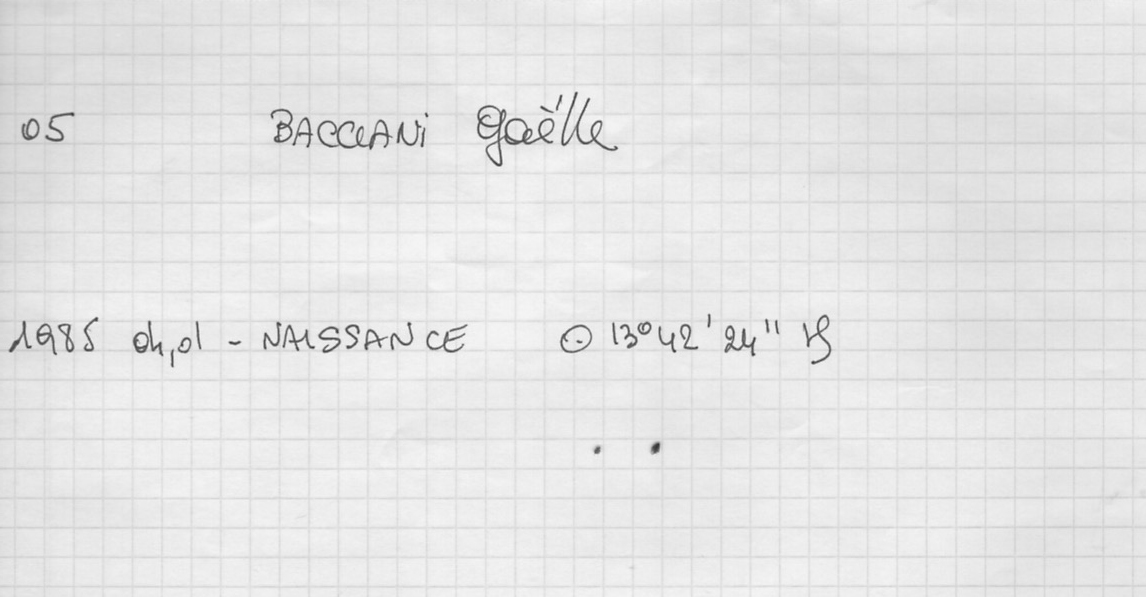 05 BACCIANi Gaëlle
1985 04,01 - NAISSANCE ☉ 13°42'24" ♑